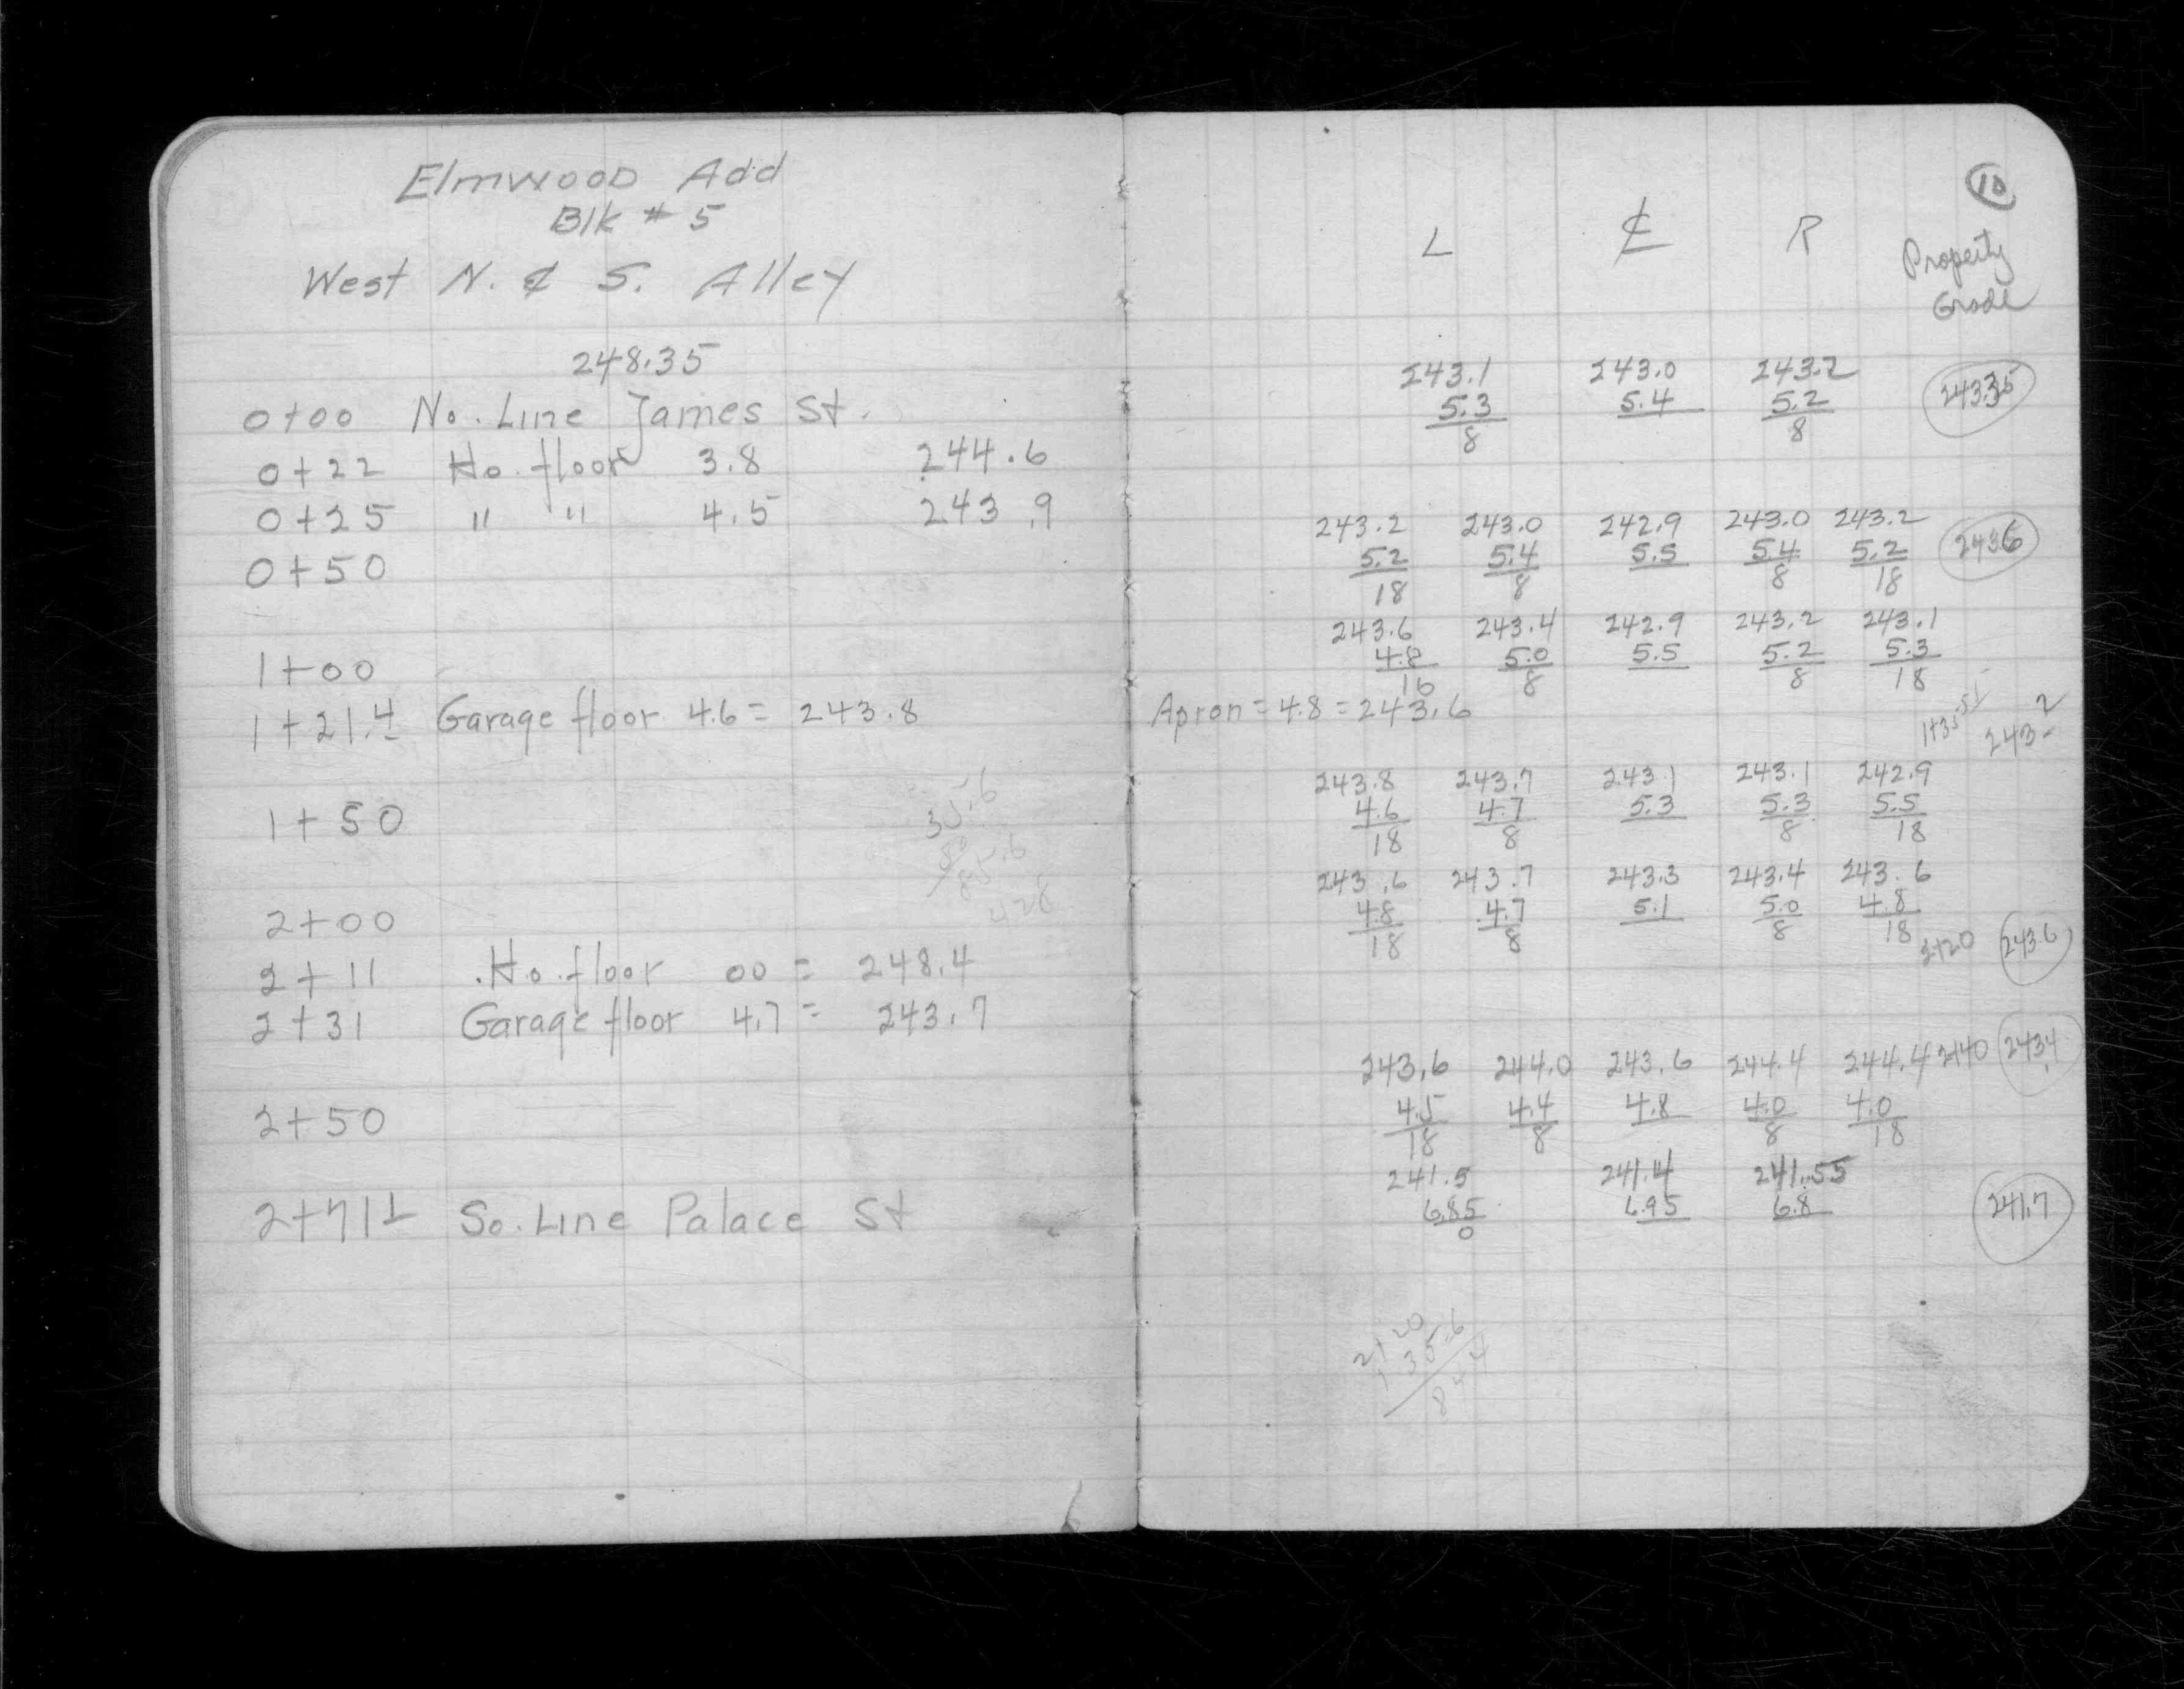 Elmwood Add
Blk # 5
West N. & S. Alley
248.35
0+00 No. Line James St.
0+22 Ho. floor 3.8 244.6
0+25 " " 4.5 243.9
0+50
1+00
1+21.4 Garage floor 4.6 = 243.8
1+50
35.6
50
85.6
428
2+00
2+11 Ho. floor 00 = 248.4
2+31 Garage floor 4.7 = 243.7
2+50
2+71 So. Line Palace St
10
L ℄ R Property
Grade
243.1 243.0 243.2
5.3 5.4 5.2 243.35
8 8
243.2 243.0 242.9 243.0 243.2
5.2 5.4 5.5 5.4 5.2 243.6
18 8 8 18
243.6 243.4 242.9 243.2 243.1
4.8 5.0 5.5 5.2 5.3
16 8 8 18
Apron = 4.8 = 243.6
243.2
243.8 243.7 243.1 243.1 242.9
4.6 4.7 5.3 5.3 5.5
18 8 8 18
243.6 243.7 243.3 243.4 243.6
4.8 4.7 5.1 5.0 4.8
18 8 8 18
2+20 243.6
243.6 244.0 243.6 244.4 244.4 2+40 243.4
4.5 4.4 4.8 4.0 4.0
18 8 8 18
241.5 241.4 241.55
6.85 6.95 6.8 241.7
0
2+20
1 35.6
84.4